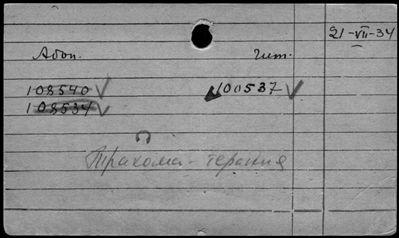 21-VII-34
Абон. Чит.
108540 100537
108534
Трахома - терапия